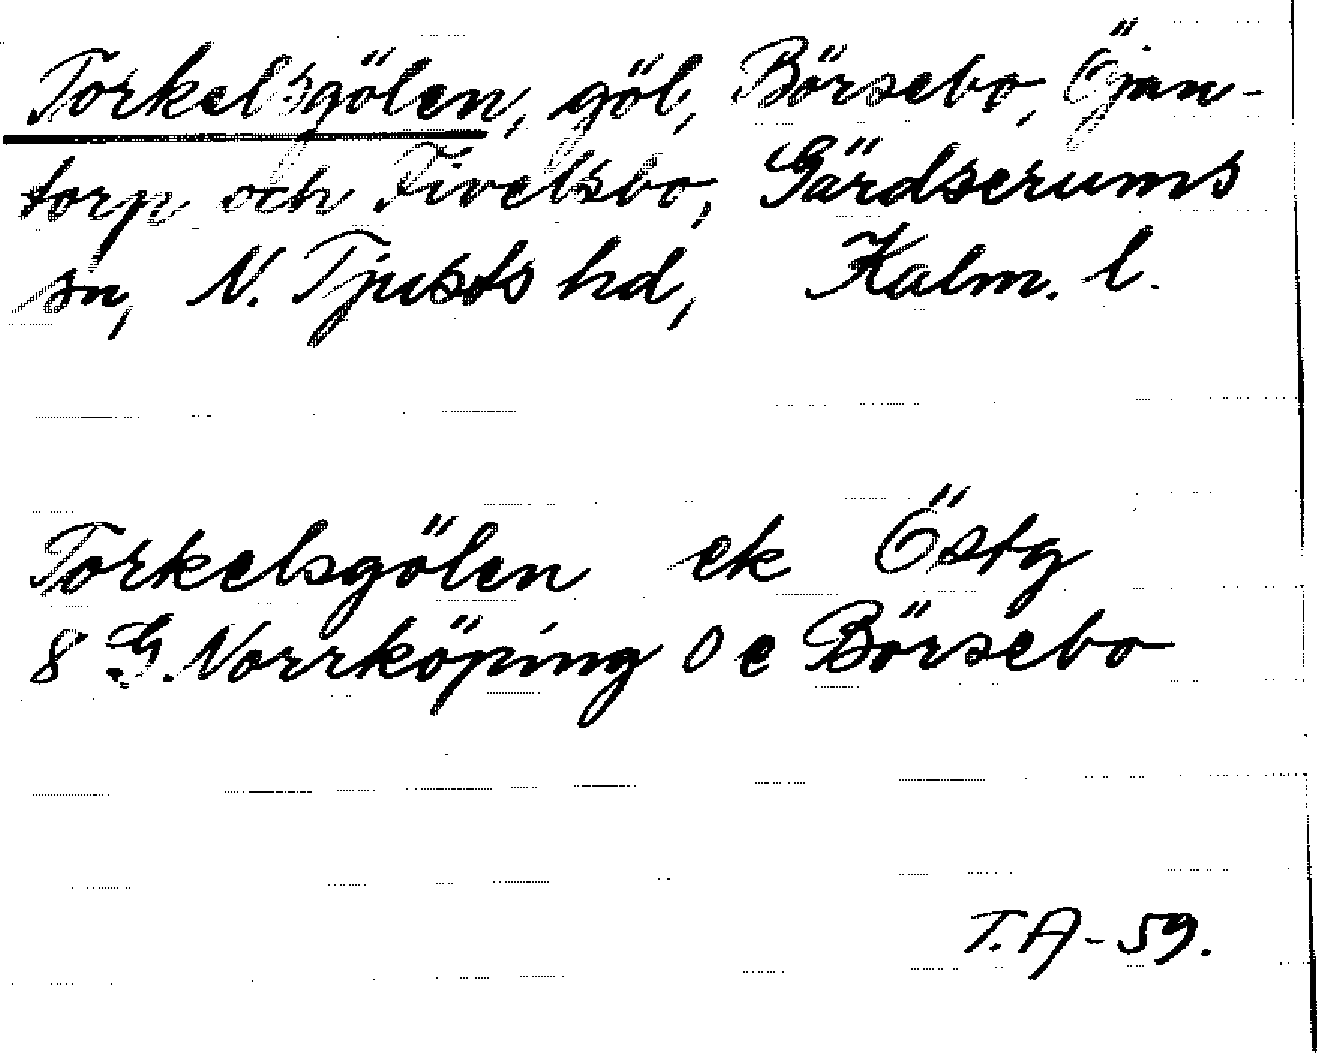 Torkelsgölen, göl, Börsebo, Öjan-
torp och Tivelsbo, Gärdserums
sn, N. Tjusts hd, Kalm. l.
Torkelsgölen ek Östg
8 G. Norrköping O e Börsebo
T.A-59.